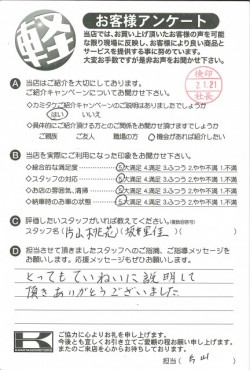 軽
お客様アンケート
当店では、お買い上げ頂いたお客様の声を可能な限り現場に反映し、お客様により良い商品と
サービスを提供する事に努めています。
大変お手数ですが是非お声をお聞かせ下さい。
A 当店はご紹介を大切にしております。
ご紹介キャンペーンについてお聞かせ下さい。
検印
2.1.21
社長
◇カミタケご紹介キャンペーンのご説明はありましたでしょうか
はい いいえ
◇具体的にご紹介頂ける方とのご関係をお聞かせ頂けますでしょうか
ご親族 ご友人 職場の方 機会があれば紹介したい
B 当店を実際にご利用になった印象をお聞かせ下さい。
◇総合的な満足度 5大満足 4.満足 3.ふつう 2.やや不満 1.不満
◇スタッフの対応 5大満足 4.満足 3.ふつう 2.やや不満 1.不満
◇お店の雰囲気、清掃 5大満足 4.満足 3.ふつう 2.やや不満 1.不満
◇納車時のお車の状態 5大満足 4.満足 3.ふつう 2.やや不満 1.不満
C 評価したいスタッフがいれば教えてください。(複数回答可)
スタッフ名(片山桃花)(坂井里佳)
D 担当させて頂きましたスタッフへのご指摘、ご指導メッセージを
お願いします。応援メッセージもぜひお願いします。
とってもていねいに説明して
頂きありがとうございました
K
ご協力に心よりお礼を申し上げます。
今後とも宜しくお引き立てご愛顧の程お願い申し上げます。
またのご来店を心からお待ちしております。
担当( 片山 )